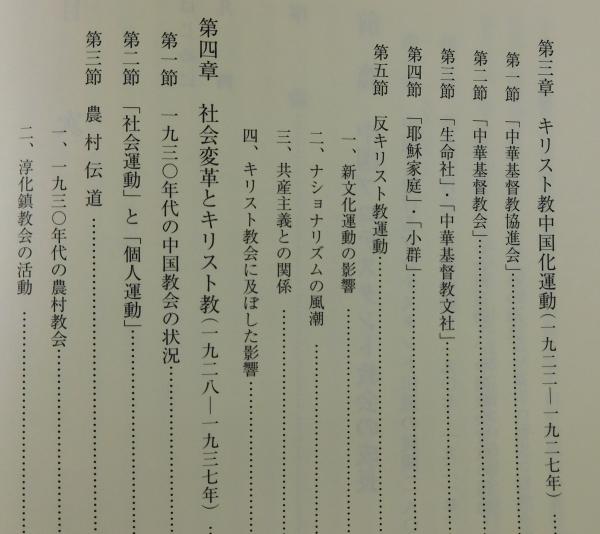 第三章　キリスト教中国化運動(一九二二―一九二七年)…
第一節　「中華基督教協進会」…
第二節　「中華基督教会」…
第三節　「生命社」・「中華基督教文社」…
第四節　「耶穌家庭」・「小群」…
第五節　反キリスト教運動…
一、新文化運動の影響…
二、ナショナリズムの風潮…
三、共産主義との関係…
四、キリスト教会に及ぼした影響…
第四章　社会変革とキリスト教(一九二八―一九三七年)…
第一節　一九三〇年代の中国教会の状況…
第二節　「社会運動」と「個人運動」…
第三節　農村伝道…
一、一九三〇年代の農村教会…
二、淳化鎮教会の活動…